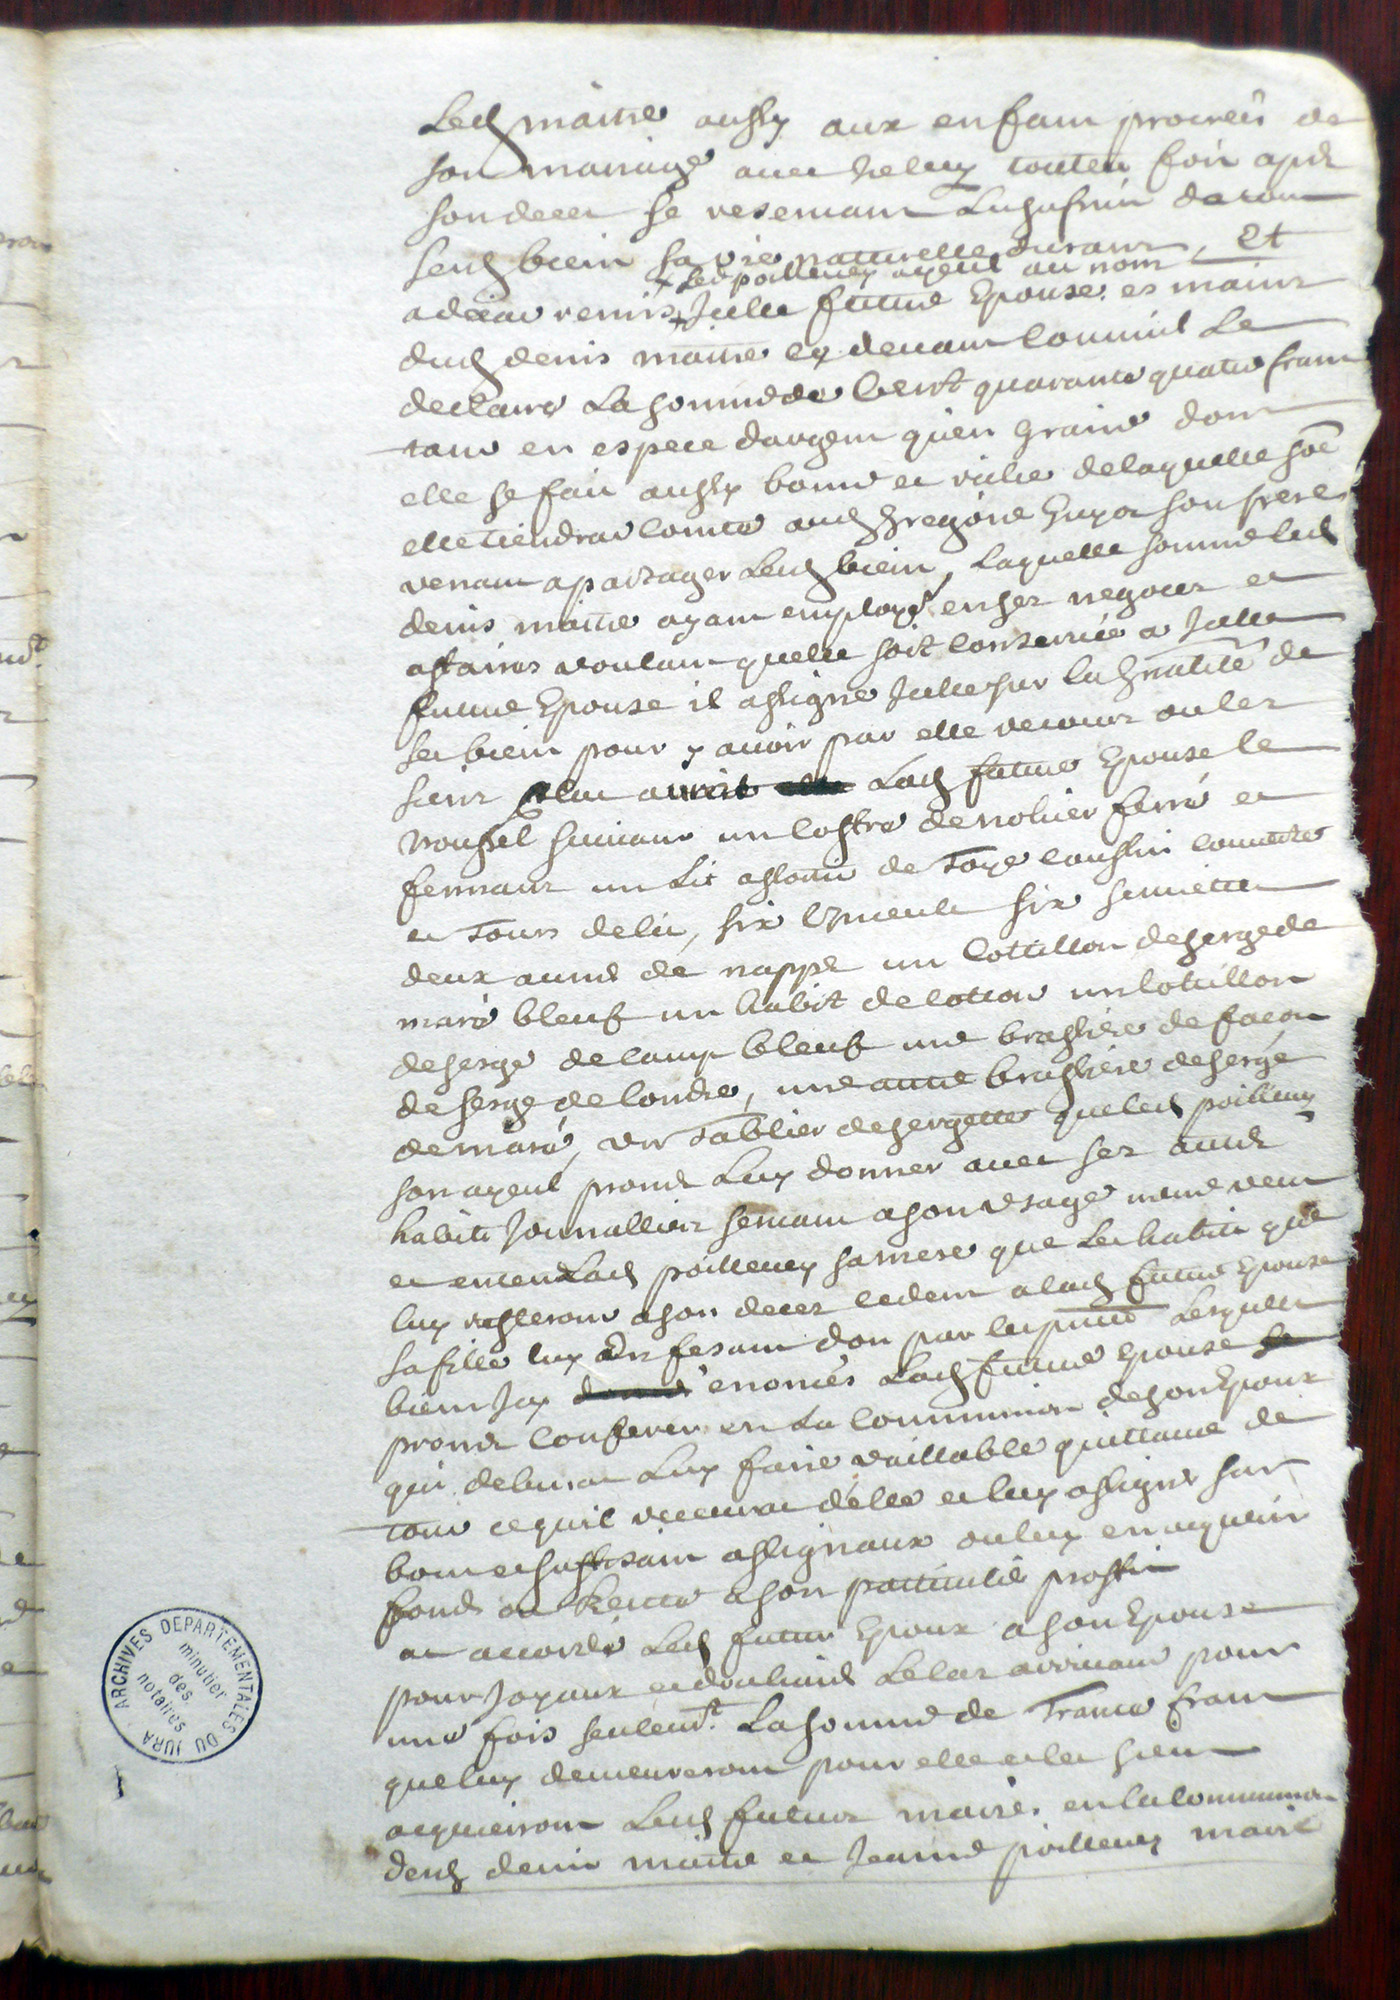 Led maitre aussy aux enfam procreés de
son mariage avec Jceluy toutes fois apres
son deces se reservant Lusufruit de tous
sesd bien sa vie naturelle durant, Et
Led poilleney ayeul au nom
adciau remis Jcelle future Epouse es mains
dud denis maitre et devant commil Le
declaire La somme de Cent quarante quatre franc
tant en espece dargent quen graine dont
elle se fait aussy bonne et riche de laquelle soe
elle tiendrat comte aud gregoire Guyot son frere
venant a partager Lesd bien, Laquelle somme led
denis maitre ayant employé en ses negoces et
affaires voulant quelle soit conservée a Jcelle
future Epouse il assigne Jcelle sur la gnalité de
ses bien pour y avoir par elle recour ou les
siens Elle aurat Lad future Epouse le
troussel suivant un coffre de nohier ferré et
fermant un Lit assorti de Toye coussin couverte
et Tours de lit, six Linceuls six serviettes
deux aunes de nappe un Cottillon de serge de
maré bleuf un habit de cotton un cotillon
de serge de camp bleuf une brassiere de facon
de serge de londre, une autre brassiere de serge
de maré, un Tablier de sergette que led poilleney
son ayeul promet Luy donner avec ses autres
habits Journalliers servant a son usage meme veut
et entend Lad poilleney sa mere que Les habits que
luy resteront a son deces cedent a lad future Epouse
sa fille luy En fesant don par les pnte Lesquels
bien Jcy enoncés Lad future epouse
promet Conferer en La Communion de son Epoux
qui deburat Luy faire vaillable quittance de
tout ce quil recevrat delle et luy assigner sur
bon et suffisant assignaux ou luy en acquerir
fond ou Rente a son particulié proffit
at accordé Led futur Epoux a son Epouse
pour Joyaux et douhaire Le cas arrivant pour
une fois seulemt. La somme de Trante franc
que luy demeureront pour elle et les siens
acquieront Lesd futurs mariés en la Communion
desd denis maitre et Jeanne poilleney marié
ARCHIVES DEPARTEMENTALES DU JURA
minutier
des
notaires